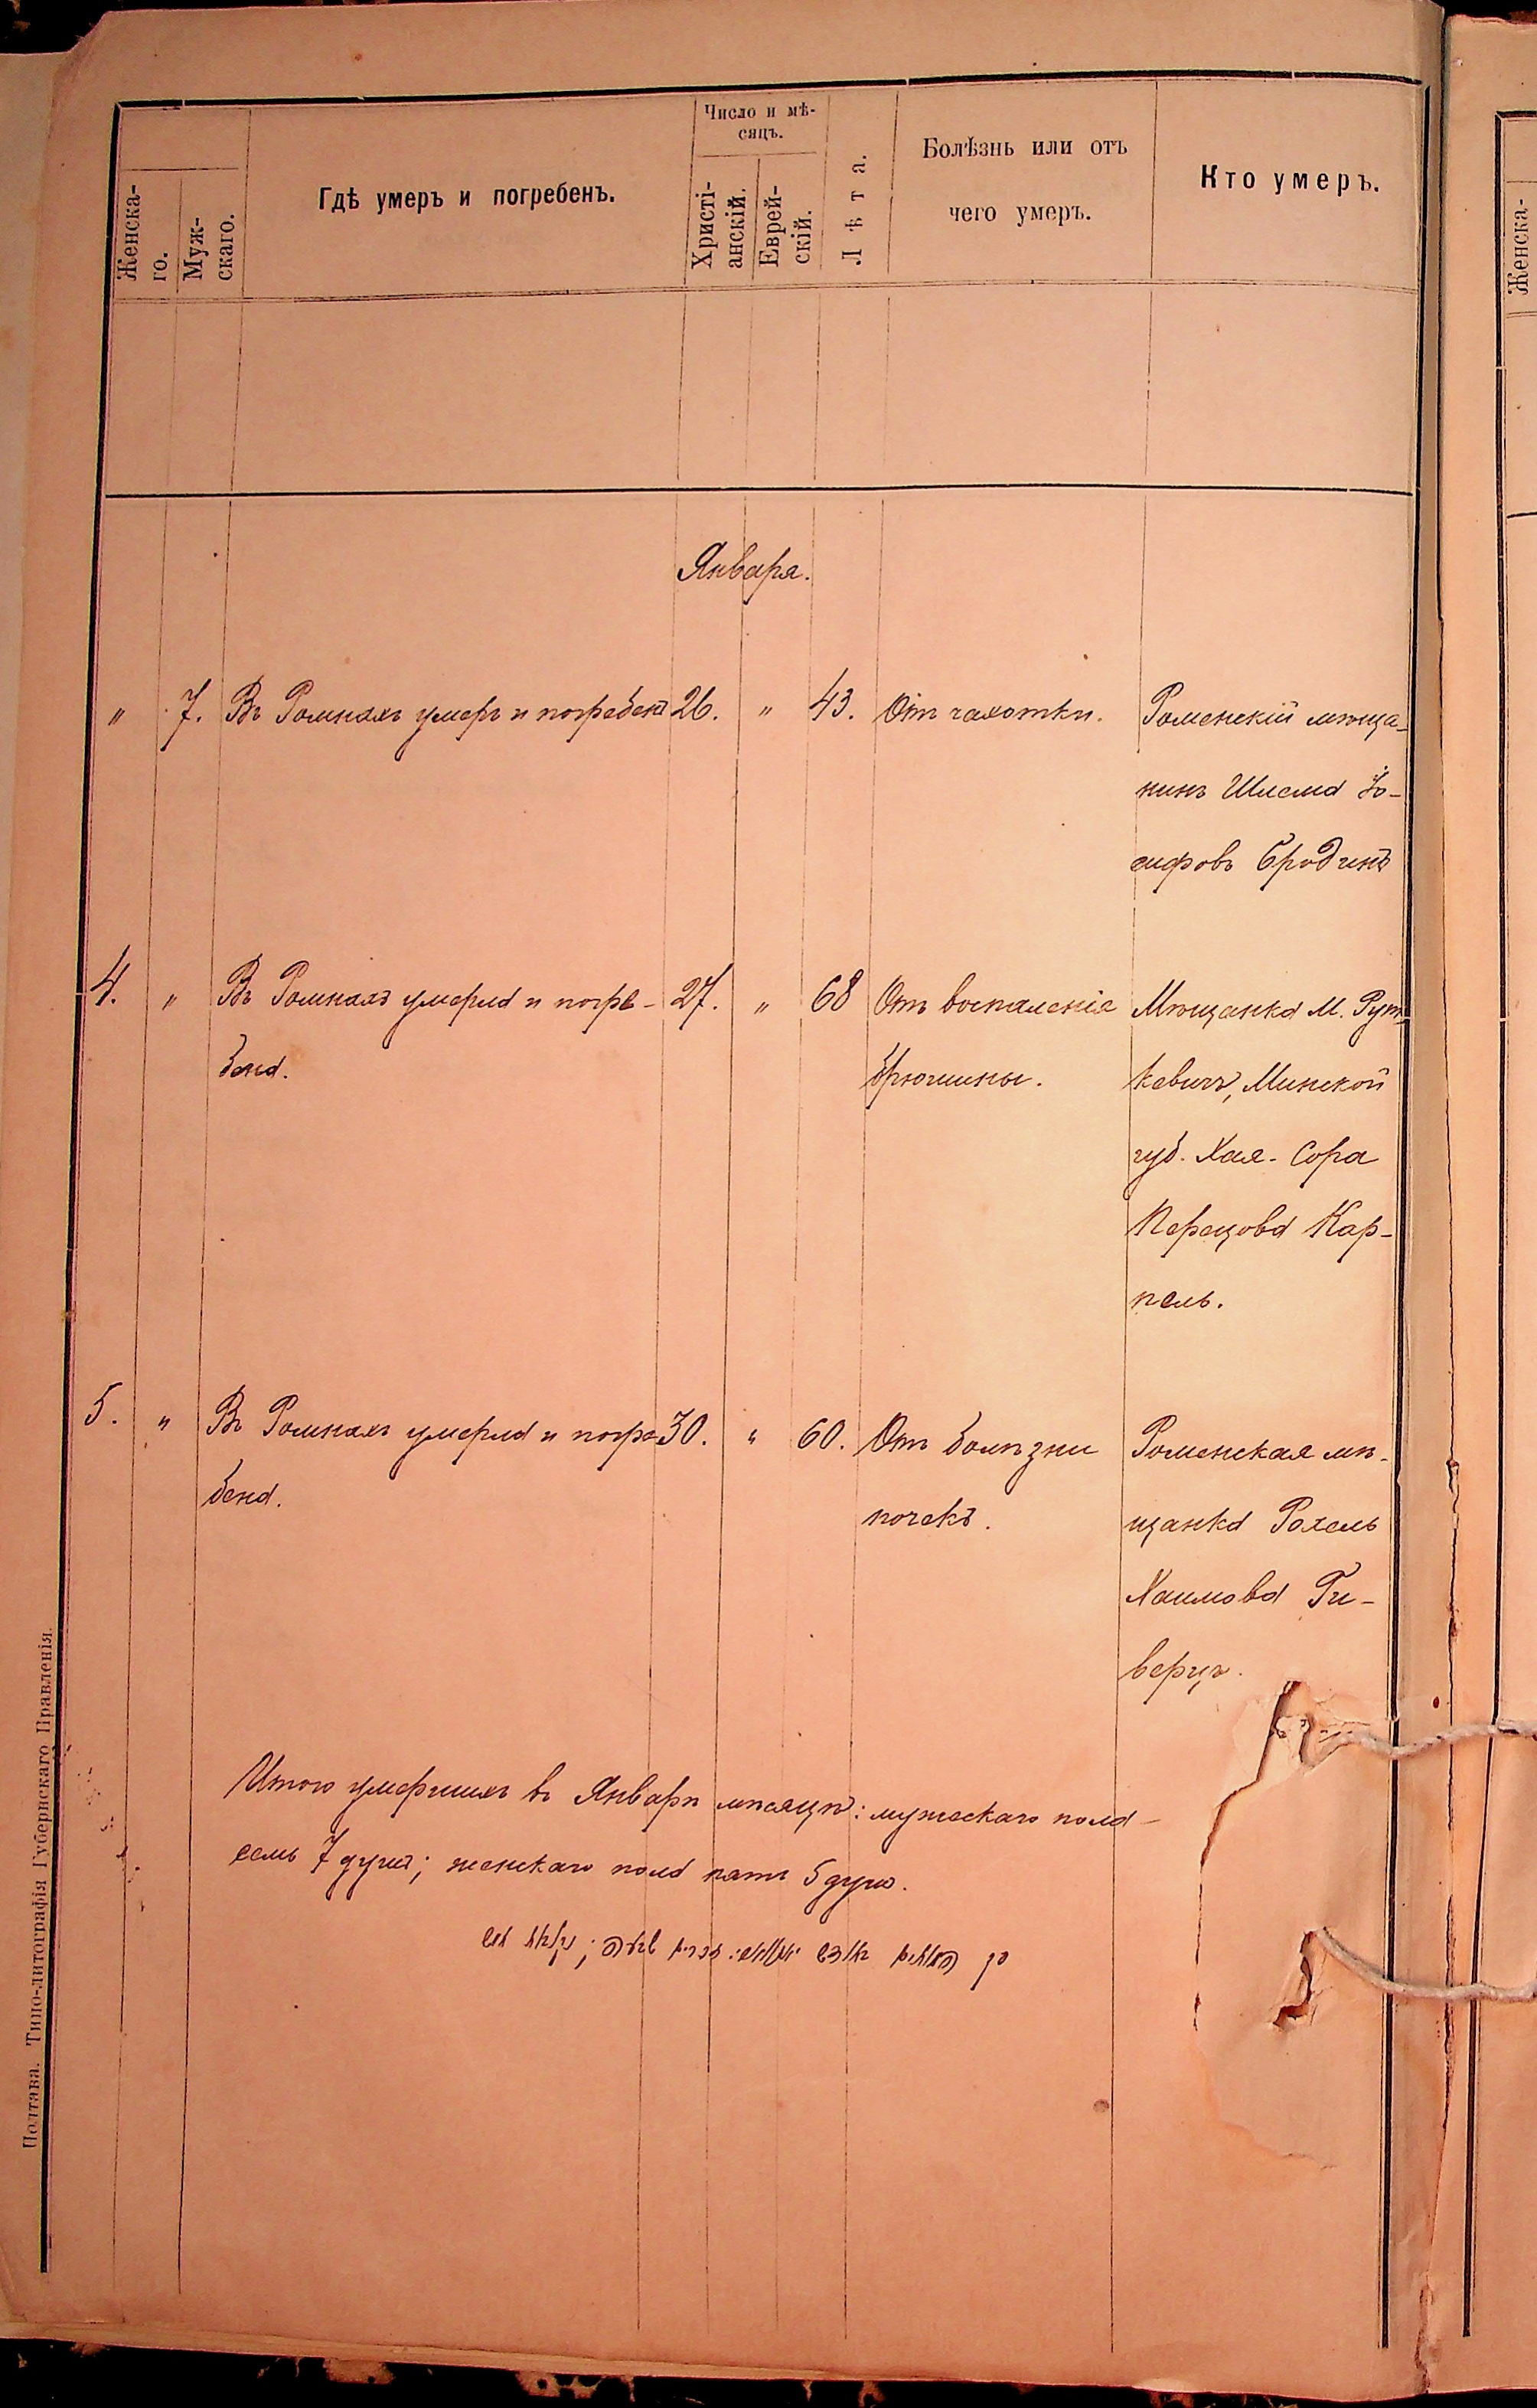 Число и мѣ-
сяцъ.
Женска-
го.
Муж-
скаго.
Гдѣ умеръ и погребенъ.
Христі-
анскій.
Еврей-
скій.
Лѣта.
Болѣзнь или отъ
чего умеръ.
Кто умеръ.
Января.
" 7. Въ Ромнахъ умеръ и погребенъ 26. " 43. Отъ чахотки. Роменскій мѣща-
нинъ Шлема Іо-
сифовъ Бродинъ
4. " Въ Ромнахъ умерла и погре- 27. " 68 Отъ воспаленія Мѣщанка М. Рут-
бена. брюшины. кевичъ, Минской
губ. Хая-Сора
Перецова Кар-
пель.
5. " Въ Ромнахъ умерла и погре- 30. " 60. Отъ болѣзни Роменская мѣ-
бена. почекъ. щанка Рохель
Хаимова Ги-
верцъ.
Итого умершихъ въ Январѣ мѣсяцѣ: мужескаго пола -
семь 7 душъ; женскаго пола пять 5 душъ.
Полтава. Типо-литографія Губернскаго Правленія.
Женска-